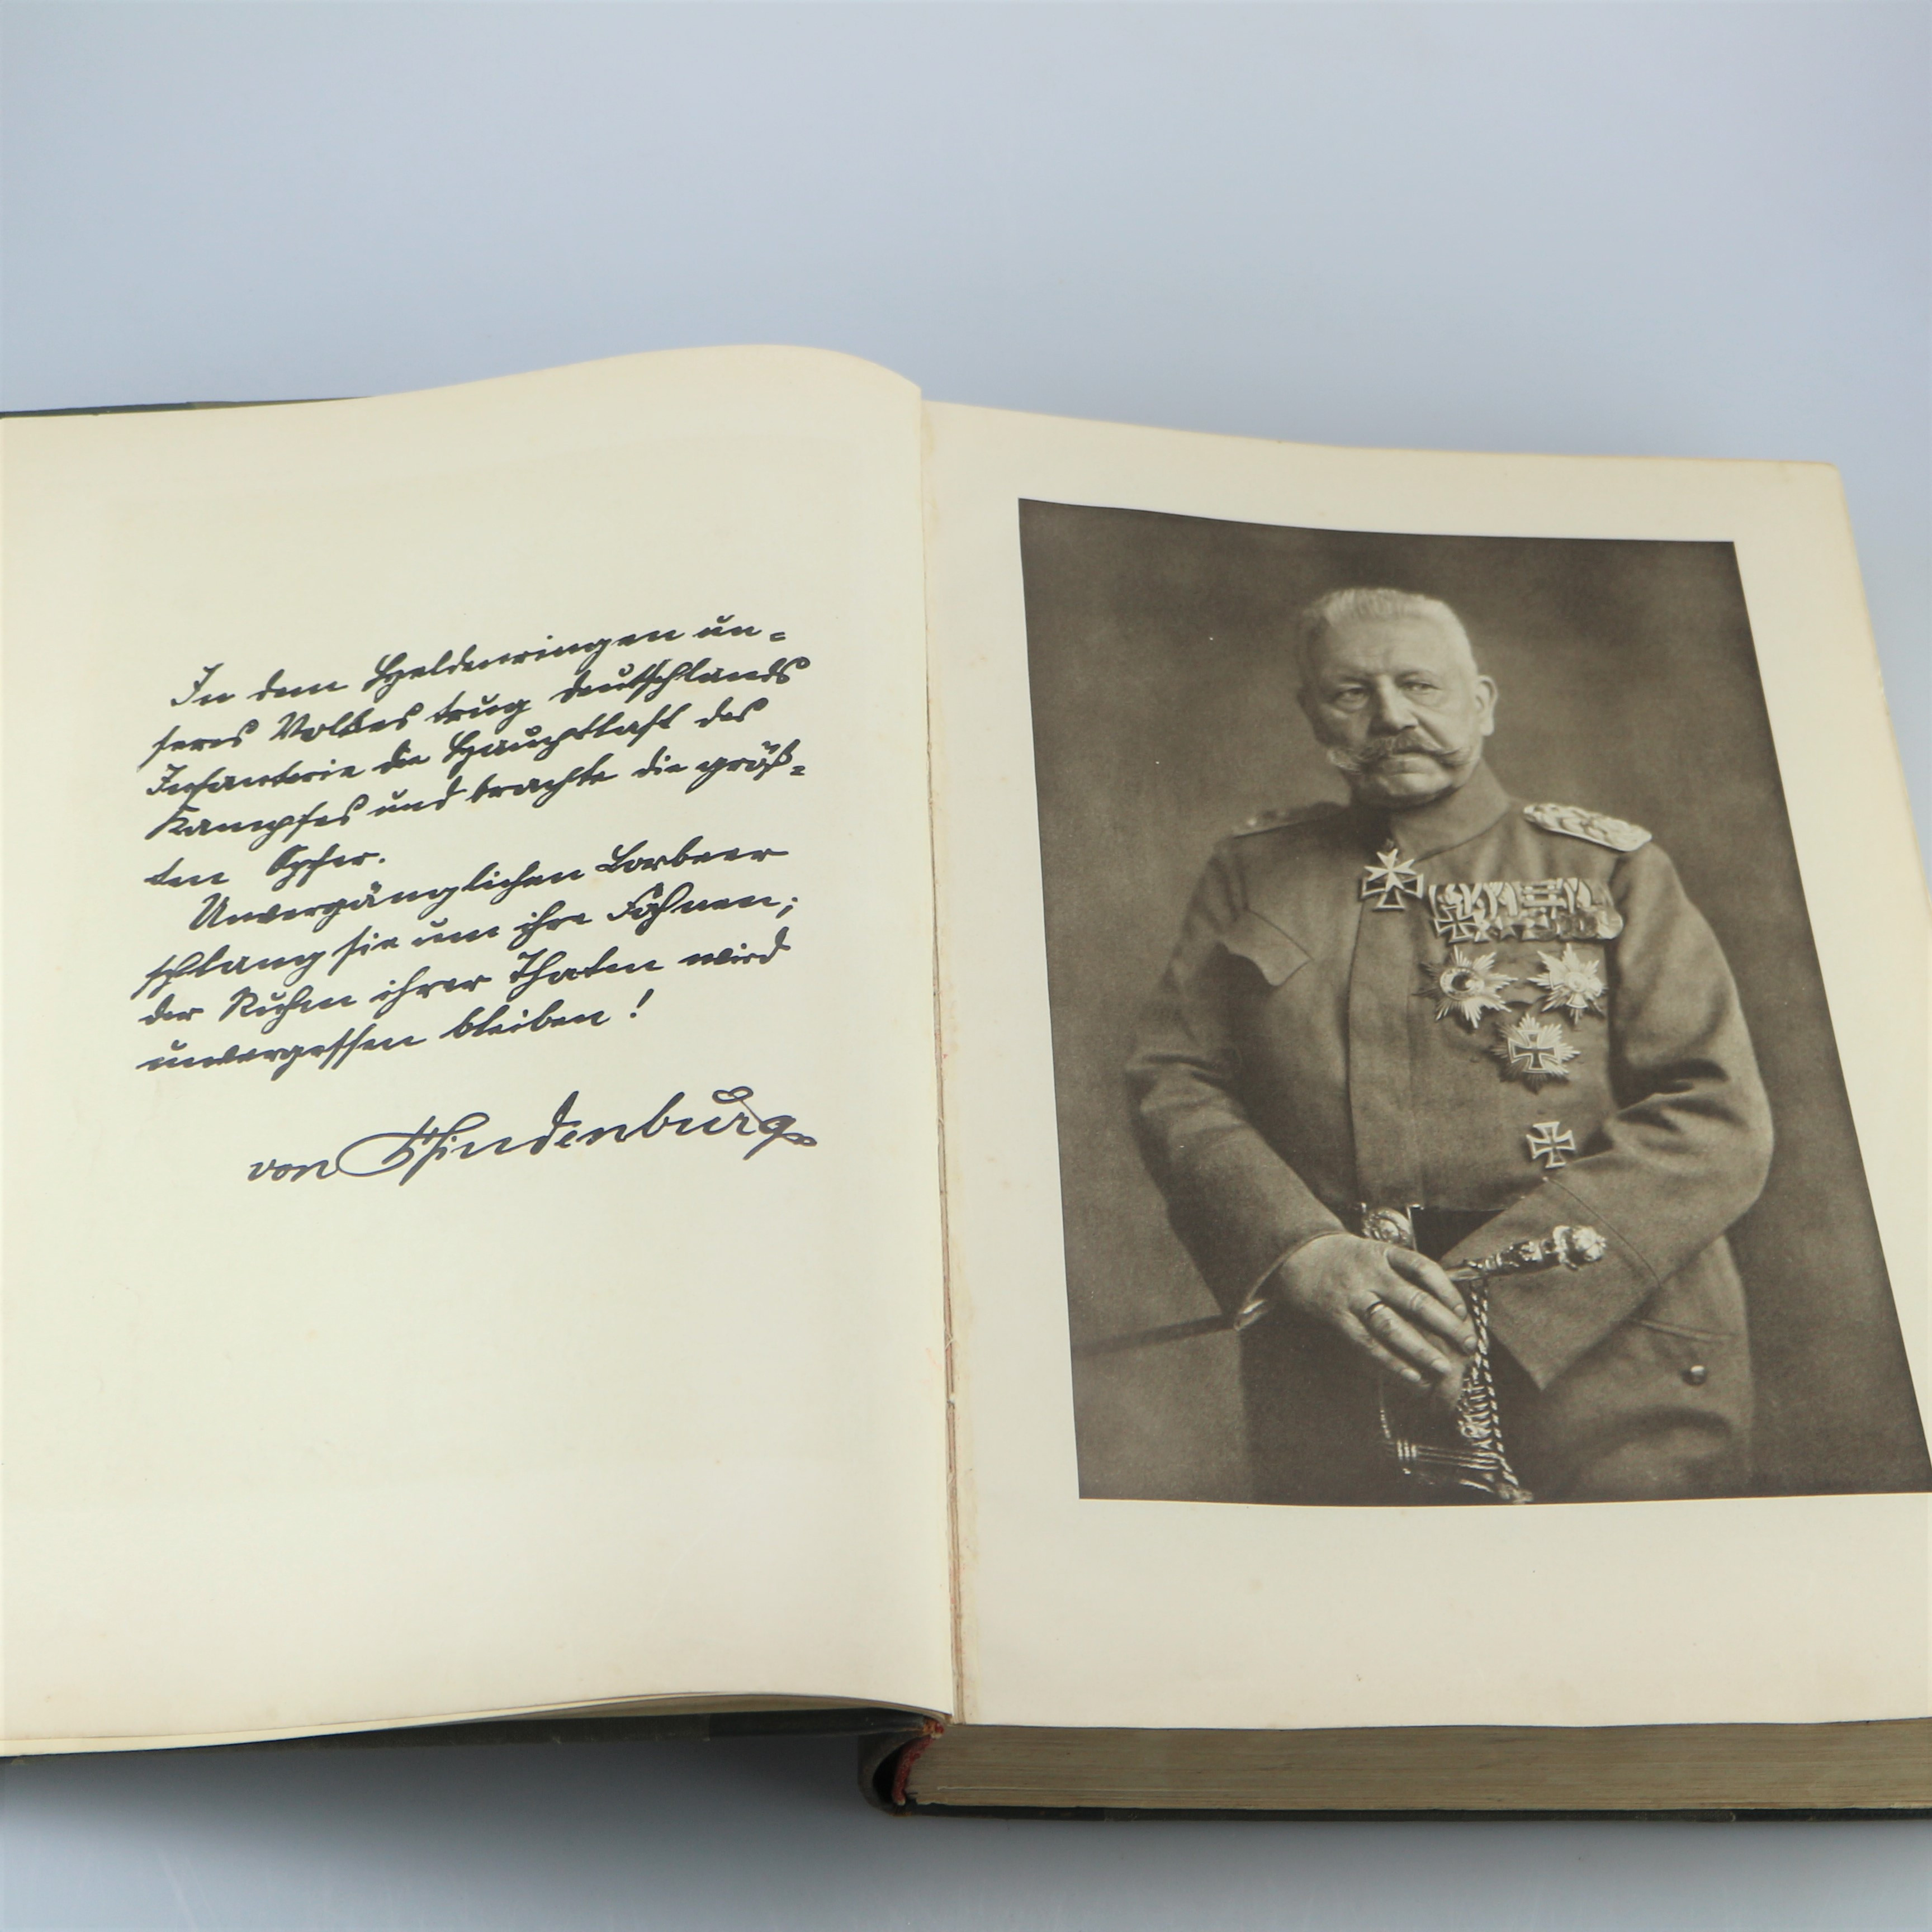 In dem Heldenringen un-
seres Volkes trug Deutschlands
Infanterie die Hauptlast des
Kampfes und brachte die größ-
ten Opfer.
Unvergänglichen Lorbeer
schlang sie um ihre Fahnen;
der Ruhm ihrer Thaten wird
unvergessen bleiben!
von Hindenburg